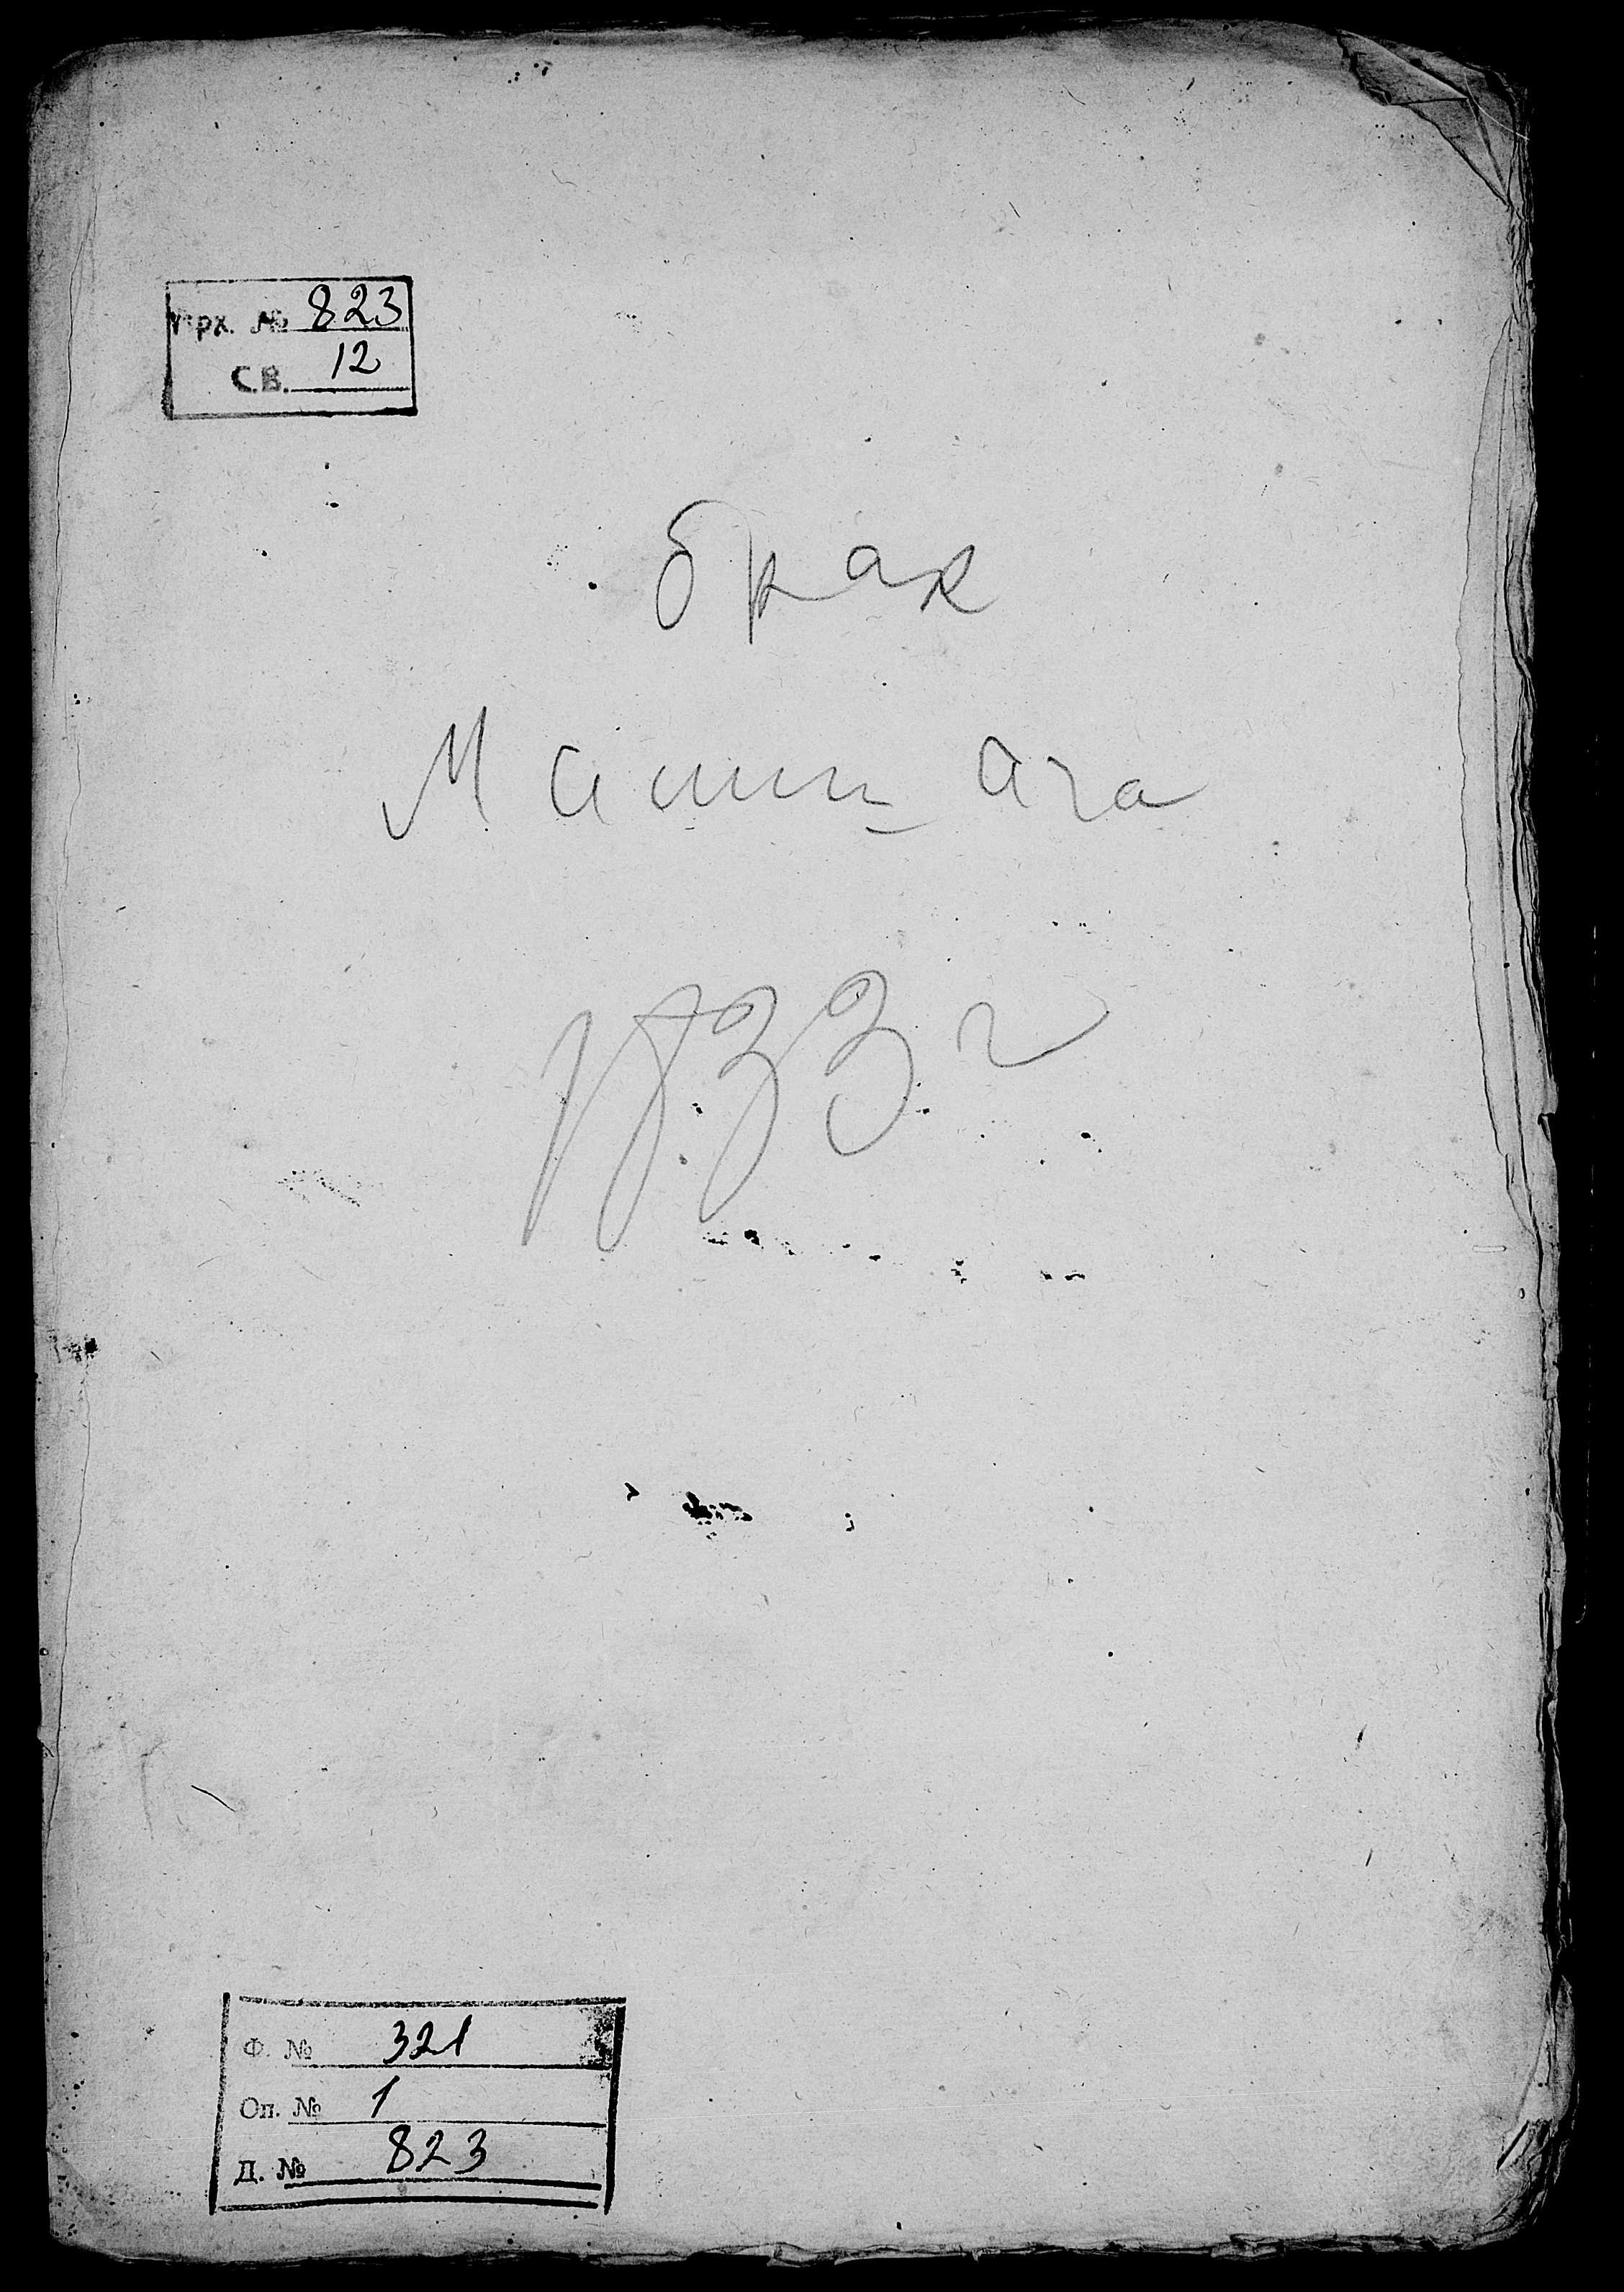 Арх. № 823
св. 12
брак
Машт ага
1933 г
Ф. № 321
Оп. № 1
Д. № 823